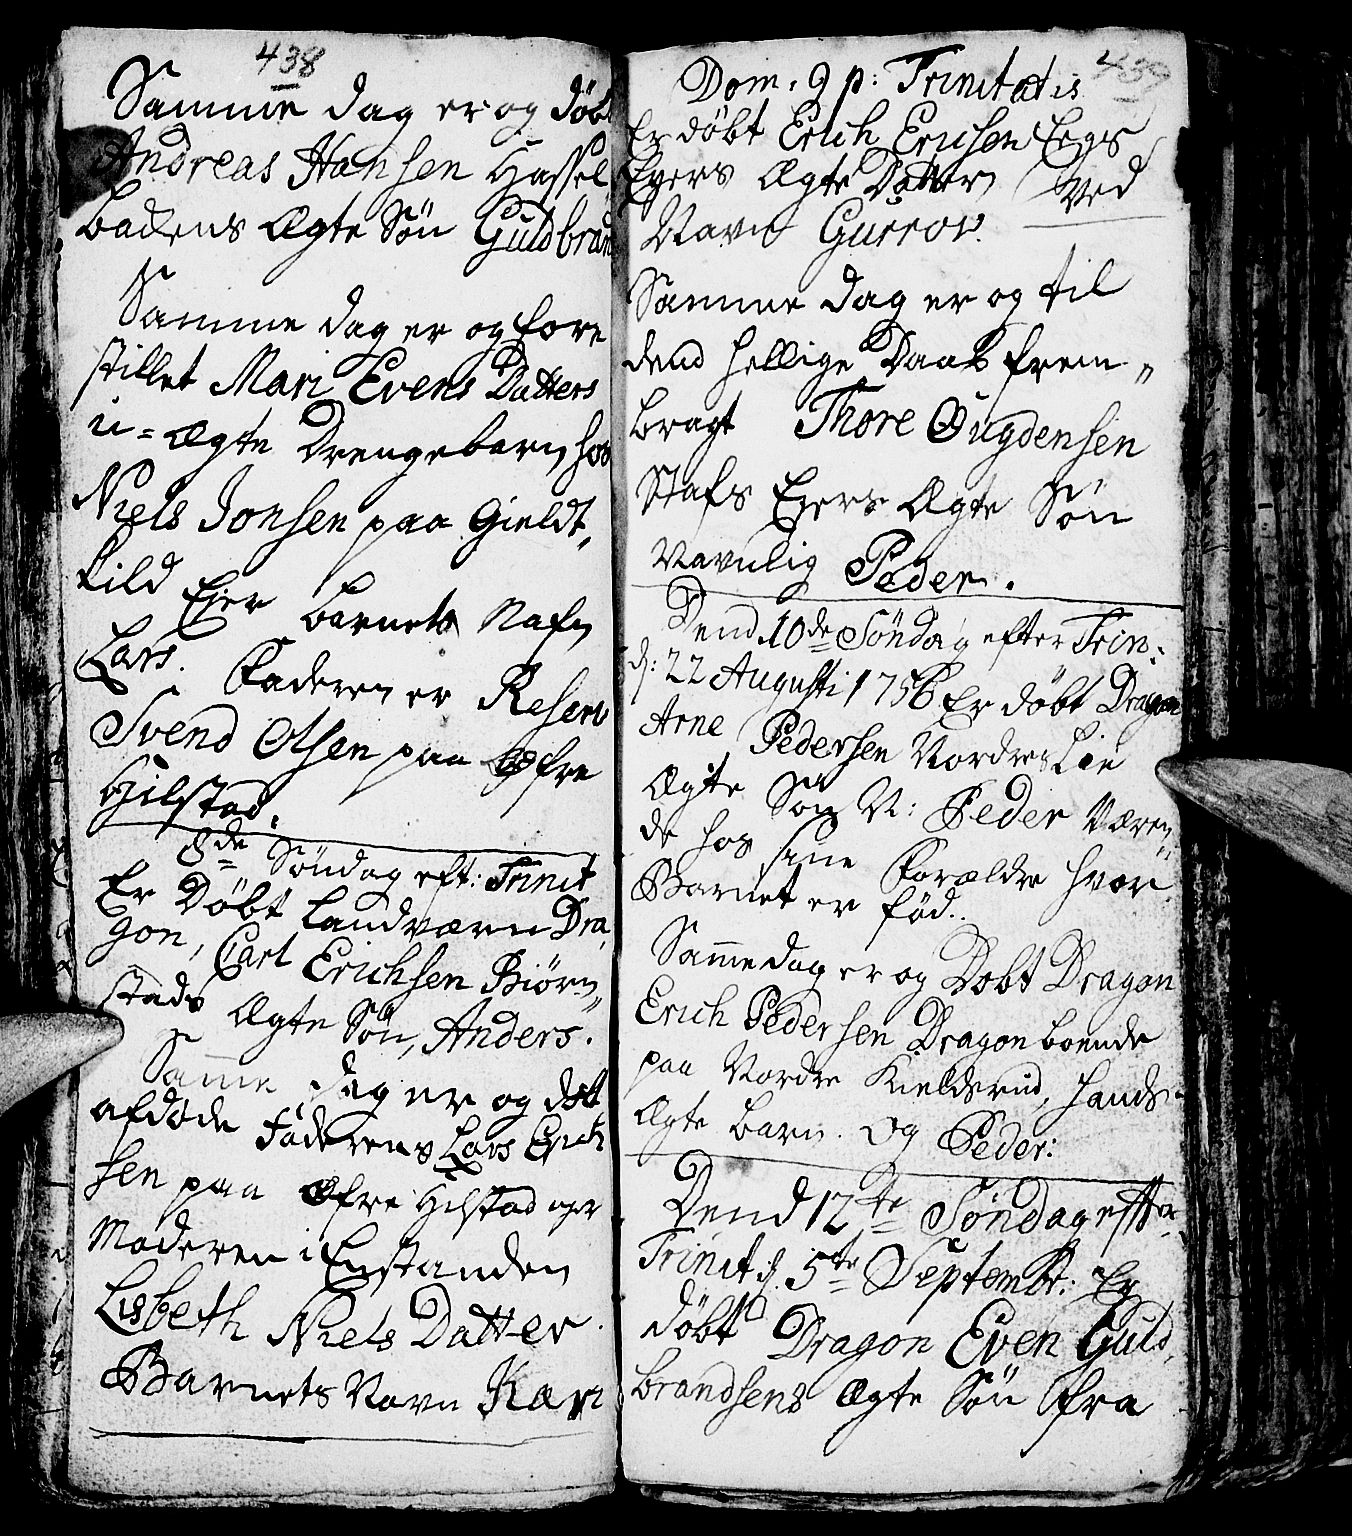 438
Samme dag er og döbt
Andreas Hansen Hassel
backens Ægte Sön Guldbrand
Samme dag er og fore
stillet Mari Evens Datters
u=Ægte Drengebarn hos
Niels Jonsen paa Gieldt„
kild Ejer barnets Nafn
Lars. Faderen er Reserv
Svend Olsen paa Øfre
Hilstad.
8de Söndag eft: Trinit
Er Döbt Landværn Dra
gon, Carl Erichsen Biörn„
stads Ægte Sön, Anders.
Samme dag er og döbt
afdøde Faderens Lars Erich
sen paa Øfre Hilstad og
Moderen i Enstanden
Lisbeth Niels Datter.
Barnets Navn Kari
439
Dom. 9 p: Trinitatis
Er döbt Erich Erichsen Eegs
Ejers Ægte Datter ved
Navn Gurrov.
Samme dag er og til
dend hellige Daab frem„
bragt Thore Gugdensen
Stafs Ejers Ægte Sön
Navnlig Peder.
Dend 10de Söndag efter Trin:
d: 22 Augusti 1756 Er döbt Dragon
Arne Pedersen Nordre Lie
Ægte Sön N: Peder Væren„
de hos sine Forældre hvor
Barnet er fød.
Samme dag er og Dobt Dragon
Erich Pedersen Dragon boende
paa Nordre Kielderud, hands
Ægte barn. og Peder:
Dend 12te Söndag efter
Trinit d. 5te Septembr: Er
döbt Dragon Even Guld„
brandsens Ægte Sön fra